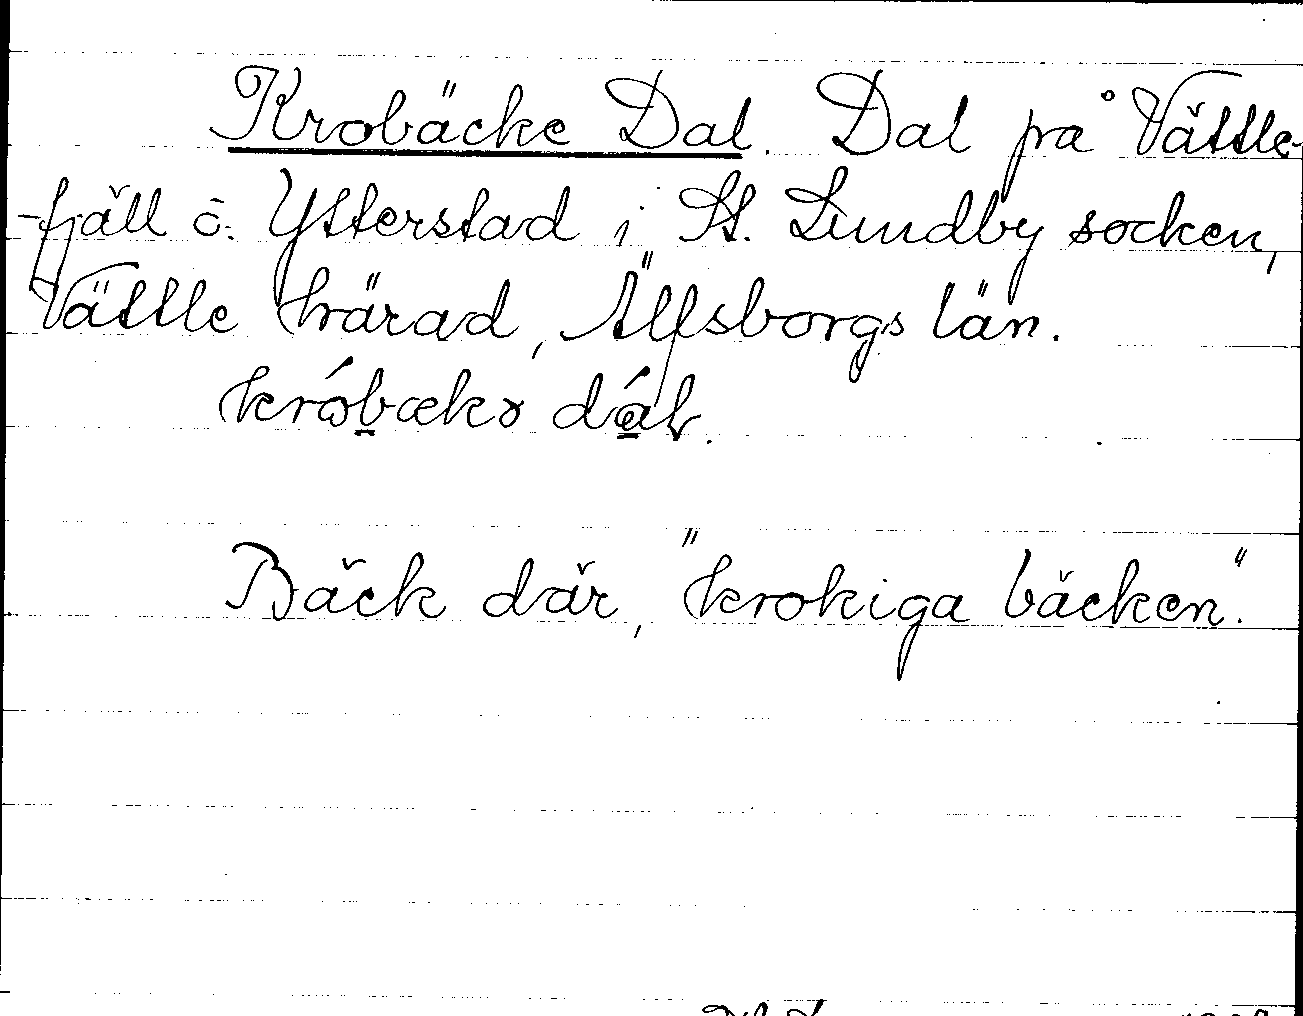 Krobäcke Dal. Dal på Vättle-
-fjäll ö. Ytterstad i St. Lundby socken,
Vättle härad, Älfsborgs län.
Bäck där, "krokiga bäcken".